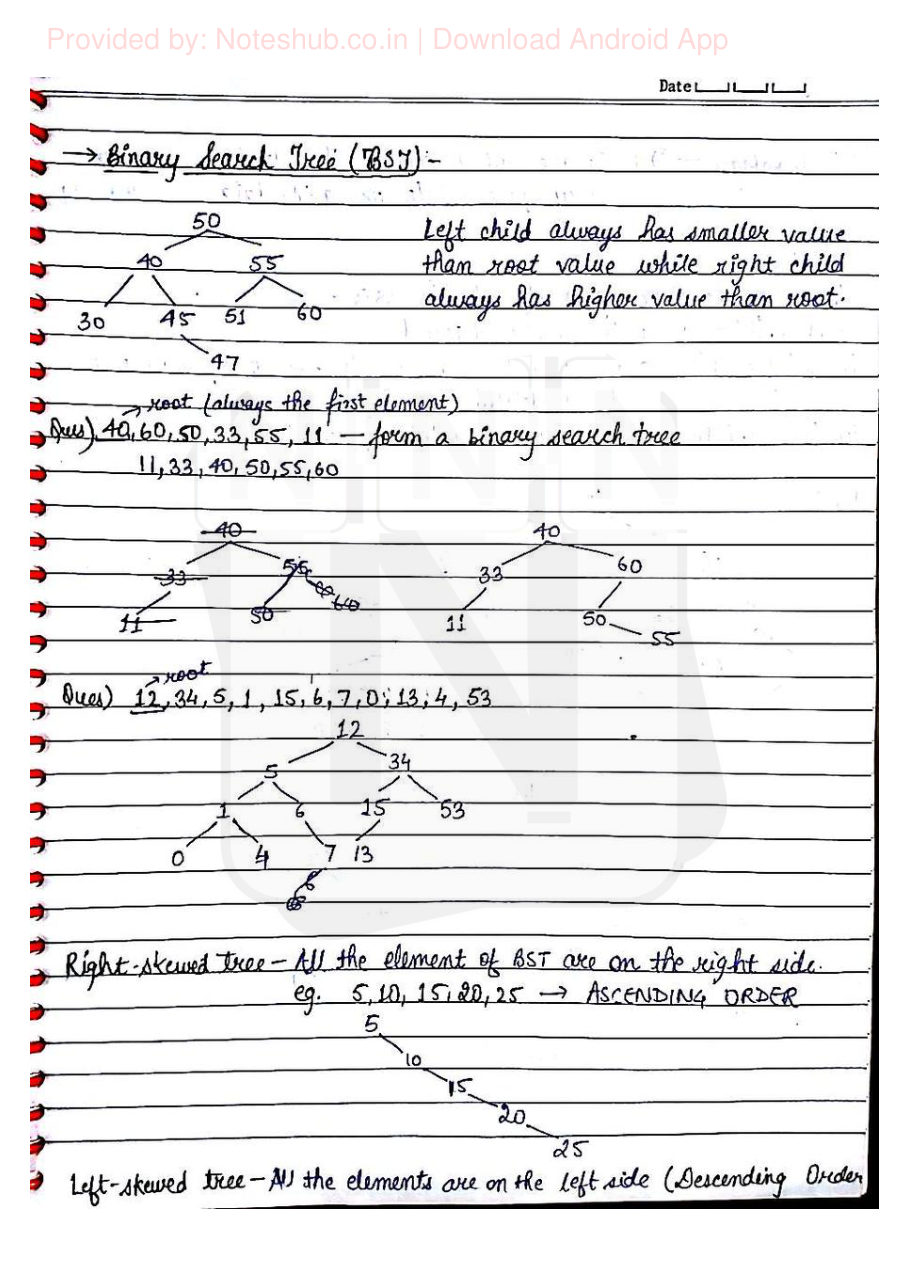 Provided by: Noteshub.co.in | Download Android App
Date
→ Binary Search Tree (BST) -
50
40 55
30 45 51 60
47
Left child always has smaller value
than root value while right child
always has higher value than root.
→ root (always the first element)
Ques) 40, 60, 50, 33, 55, 11 — form a binary search tree
11, 33, 40, 50, 55, 60
40
33 55
11 50 60
40
33 60
11 50
55
→ root
Ques) 12, 34, 5, 1, 15, 6, 7, 0, 13, 4, 53
12
5 34
1 6 15 53
0 4 7 13
Right-skewed tree - All the element of BST are on the right side.
eg. 5, 10, 15, 20, 25 → ASCENDING ORDER
5
10
15
20
25
Left-skewed tree - All the elements are on the left side (Descending Order